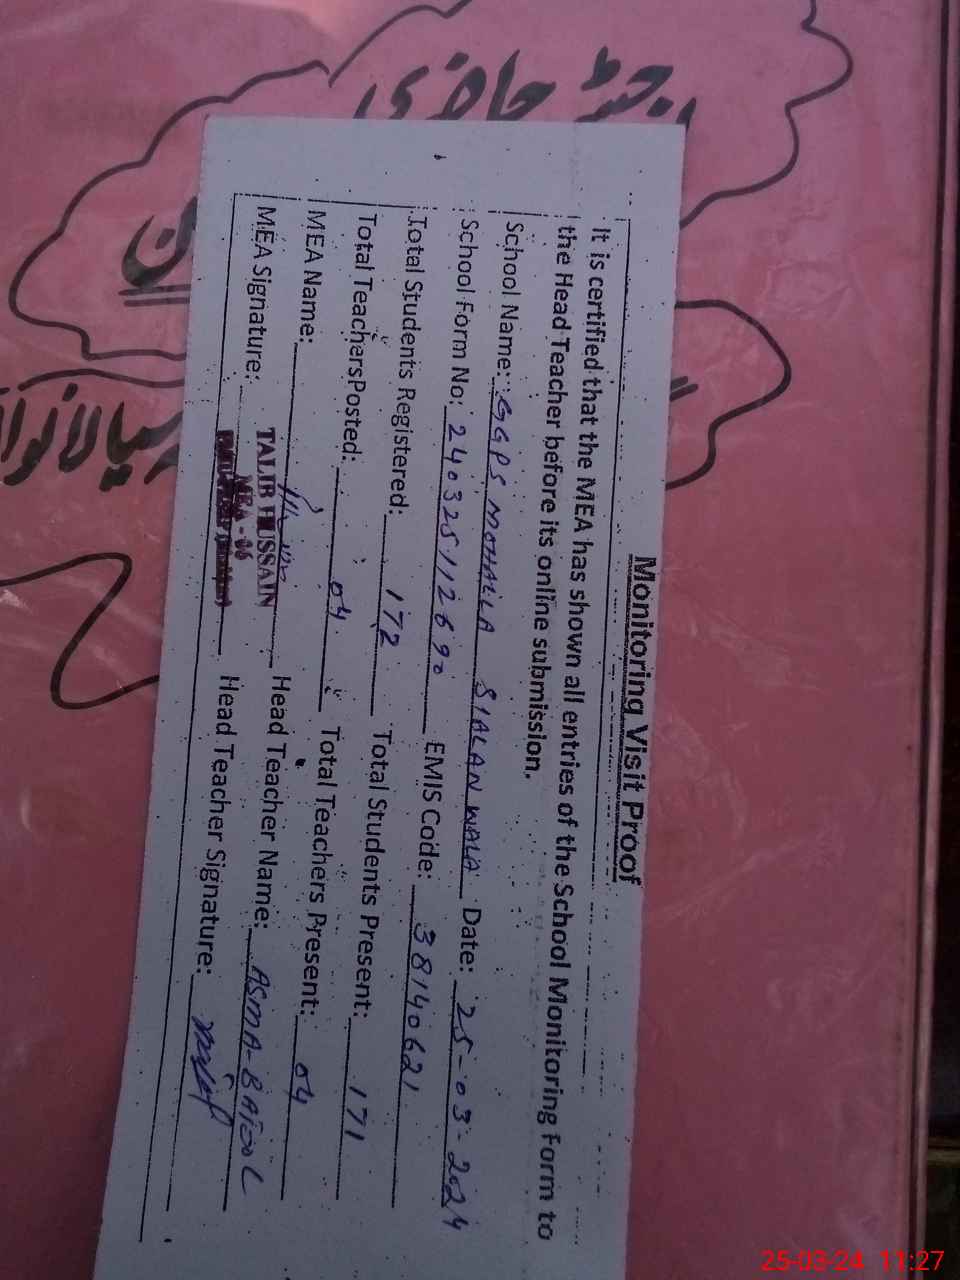 Monitoring Visit Proof
It is certified that the MEA has shown all entries of the School Monitoring Form to
the Head Teacher before its online submission.
School Name: GGPS MOHALLA SIALAN WALA Date: 25-03-2024
School Form No: 240325112690 EMIS Code: 38140621
Total Students Registered: 172 Total Students Present: 171
Total TeachersPosted: 04 Total Teachers Present: 04
MEA Name: Head Teacher Name: ASMA-BATOOL
MEA Signature: TALIB HUSSAIN Head Teacher Signature:
MEA-06
حاضری
25-03-24 11:27